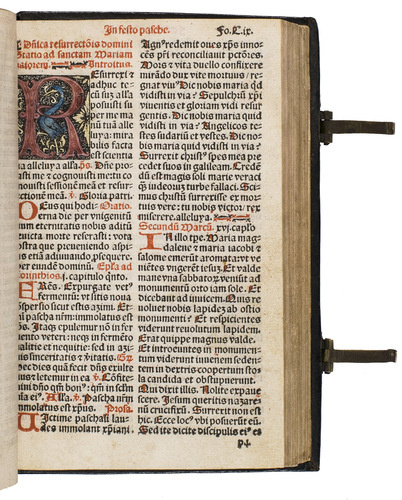 In festo pasche. Fo. C.ix.
Dñica resurrectõis domini
Statio ad sanctam Mariam
maiorem. Introitus.
Resurrexi &
adhuc te-
cũ suȝ alľa
posuisti su
per me ma
nũ tuã alle
luya: mira
bilis facta
est scientia
tua alleluya alľa. ps. Dñe pro-
basti me & cognouisti me: tu co
gnouisti sessionẽ meã et resur-
rectionẽ meã. v̾. Gloria patri.
Deus qui hodi- Oratio.
erna die per vnigenitũ
tuum eternitatis nobis aditũ
deuicta morte reserasti: vota
nostra que preueniendo aspi-
res etiã adiuuando prosequere.
per eundẽ dominũ. Epľa. ad
Corinthios. j. capitulo q̃nto.
FRẽs. Expurgate vetꝰ
fermentũ: vt sitis noua
conspersio sicut estis azimi. Et-
enim pascha nr̃m immolatus est
xp̃s. Itaqȝ epulemur nõ in fer
mento veteri: neqȝ in fermẽto
malitie et nequitie: sed in azi-
mis sinceritatis & v̾itatis. Gr̃.
Hec dies quã fecit dñs exulte
mus & letemur in ea v̾. Cõfite-
mini dño qm̃ bonꝰ: qm̃ in seculũ
mia eiꝰ. Alľa. v̾. Pascha nr̃m
immolatus est xp̃us. Prosa.
Victime paschali lau-
des immolant xp̃iani.
Agnꝰ redemit oues xp̃s inno-
cẽs pr̃i reconciliauit pctõres.
Mors & vita duello conflixere
mirãdo dux vite mortuus / re-
gnat viuꝰ Dic nobis maria qd
vidisti in via? Sepulchrũ xp̃i
viuentis et gloriam vidi resur
gentis. Dic nobis maria quid
vidisti in via? Angelicos te-
stes sudariũ et vestes. Dic no-
bis maria quid vidisti in via?
Surrexit christꝰ spes mea pre
cedet suos in galileam. Credẽ
dũ est magis soli marie veraci
q̃ȝ iudeorũ turbe fallaci. Sci-
mus christũ surrexisse ex mor-
tuis vere: tu nobis victor / rex
miserere. alleluya.
Secundũ Marcũ. xvj. caplo.
IN illo tp̃e. Maria mag
dalene & maria iacobi &
salome emerũt aromata: vt ve
niẽtes vngerẽt iesuȝ. Et valde
mane vna sabbatorũ veniũt ad
monumẽtũ orto iam sole. Et
dicebant ad inuicem. Quis re
uoluet nobis lapidẽ ab ostio
monumenti? Et respicientes
viderunt reuolutum lapidem.
Erat quippe magnus valde.
Et introeuntes in monumen-
tum viderunt iuuenem seden-
tem in dextris coopertum sto-
la candida et obstupuerunt.
Qui dixit illis. Nolite expaue
scere. Jesum queritis nazare-
nũ crucifixũ. Surrexit non est
hic. Ecce locꝰ vbi posuerũt eũ.
Sed ite dicite discipulis eiꝰ et